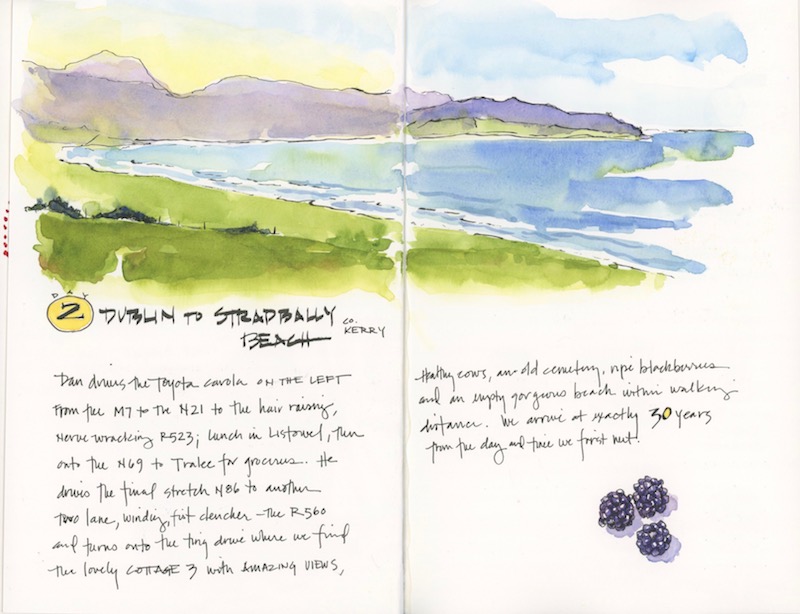 DAY
2 DUBLIN TO STRADBALLY
BEACH CO. KERRY
Dan drives the Toyota Carola ON THE LEFT
From the M7 to the N21 to the hair raising,
nerve wracking R523; lunch in Listowel, then
onto the N69 to Tralee for groceries. He
drives the final stretch N86 to another
two lane, winding, fist clencher - the R560
and turns onto the tiny drive where we find
the lovely COTTAGE 3 with AMAZING VIEWS,
Healthy cows, an old cemetery, ripe blackberries
and an empty gorgeous beach within walking
distance. We arrive at exactly 30 years
from the day and time we first met!